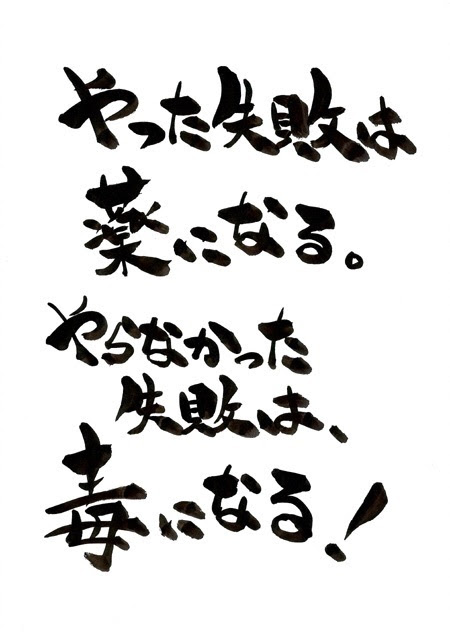 やった失敗は
薬になる。
やらなかった
失敗は、
毒になる!